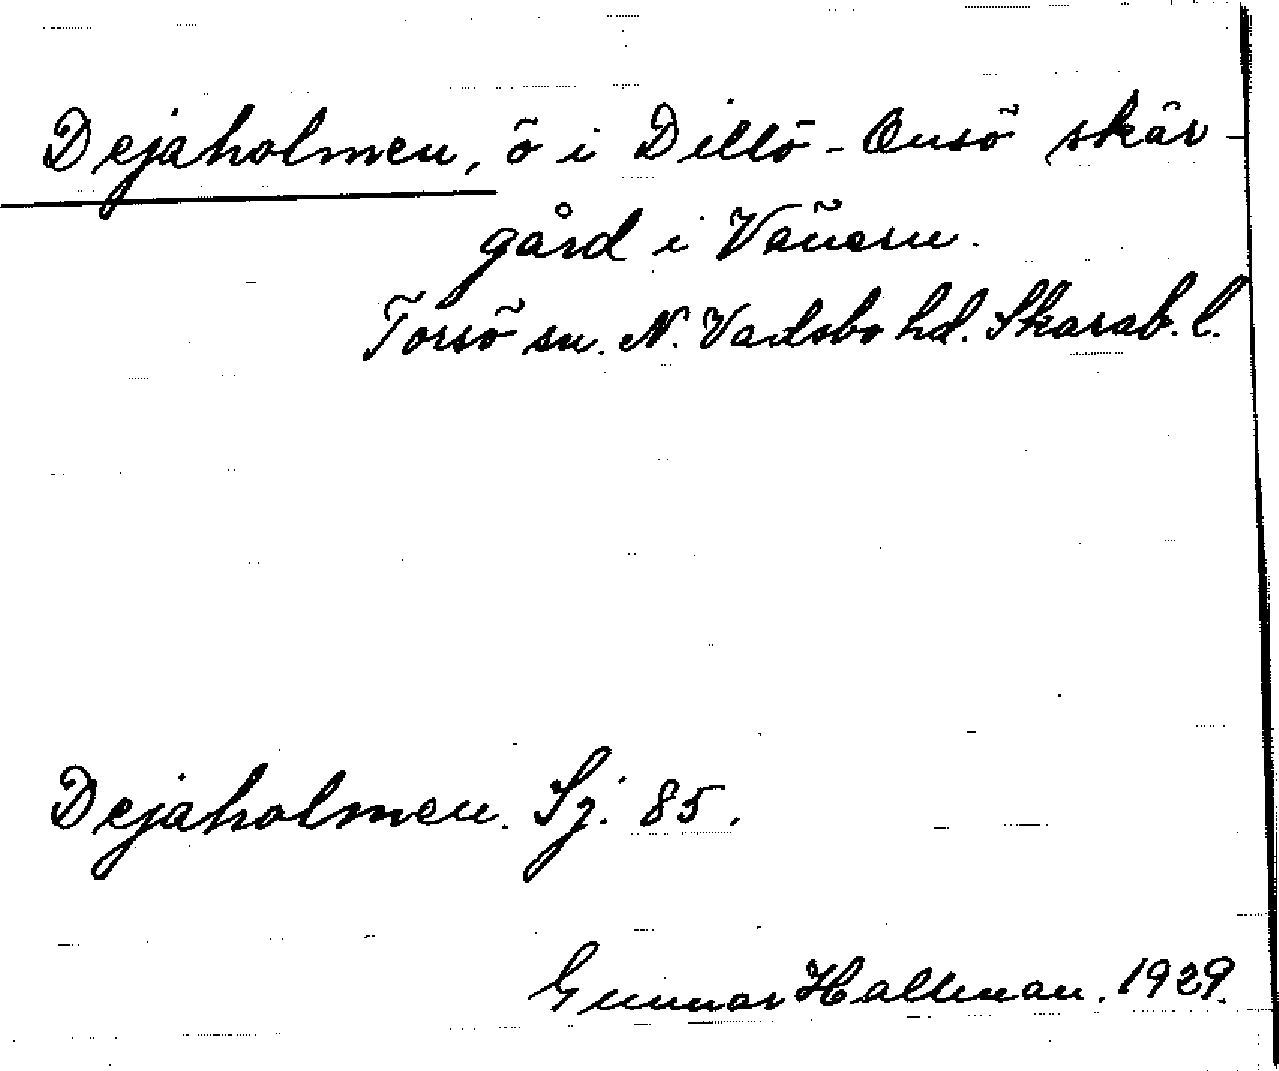 Dejaholmen, ö i Dillö-Onsö skär-
gård i Vänern.
Torsö sn. N. Vadsbo hd. Skarab. l.
Dejaholmen. Sj. 85.
Gunnar Hallman. 1929.